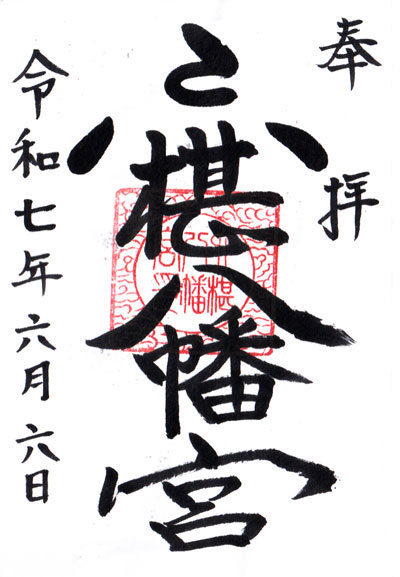 奉拝
六椹八幡宮
令和七年六月六日